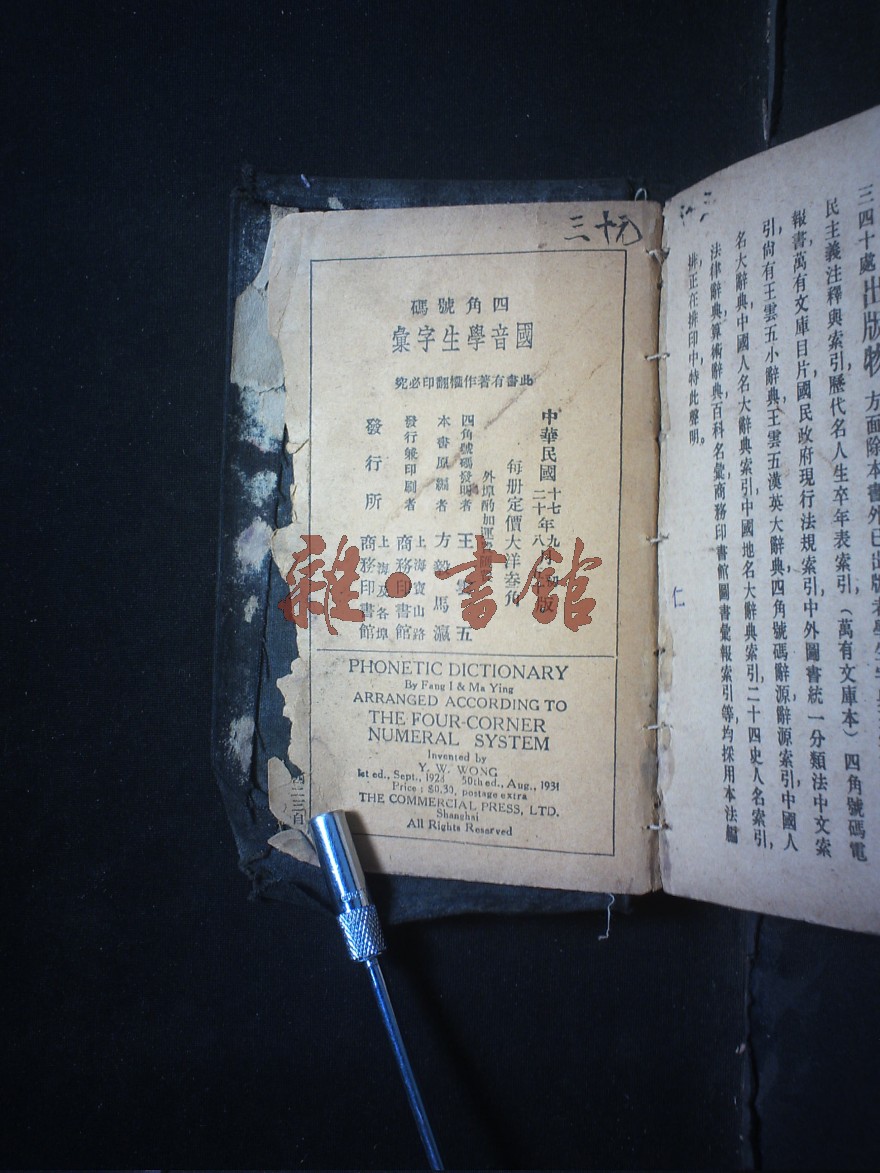 三十元
四角號碼
國音學生字彙
此書有著作權翻印必究
中華民國
十七年九月初版
二十年八月五十版
每册定價大洋叁角
外埠酌加運費匯費
四角號碼發明者 王雲五
本書原編者 方毅 馬瀛
發行兼印刷者 上海寶山路 商務印書館
發行所 上海及各埠 商務印書館
PHONETIC DICTIONARY
By Fang I & Ma Ying
ARRANGED ACCORDING TO
THE FOUR-CORNER
NUMERAL SYSTEM
Invented by
Y. W. WONG
1st ed., Sept., 1928 50th ed., Aug., 1931
Price: $0.30, postage extra
THE COMMERCIAL PRESS, LTD.
Shanghai
All Rights Reserved
四二三自
雜·書館
仁
三四十處出版物方面除本書外已出版者學生字典
民主義注釋與索引歷代名人生卒年表索引,(萬有文庫本)四角號碼電
報書,萬有文庫目片,國民政府現行法規索引,中外圖書統一分類法中文索
引,尙有王雲五小辭典,王雲五漢英大辭典,四角號碼辭源,辭源索引,中國人
名大辭典,中國人名大辭典索引,中國地名大辭典索引,二十四史人名索引,
法律辭典,算術辭典,百科名彙,商務印書館圖書彙報索引等均採用本法編
排,正在排印中,特此聲明。